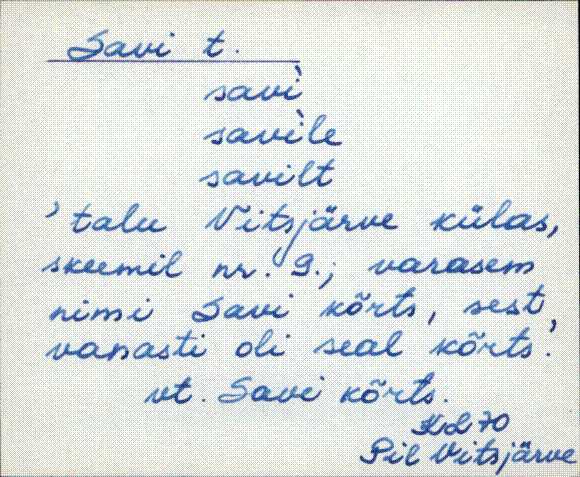 Savi t.
savì
savìle
savilt
'talu Vitsjärve külas,
skeemil nr. 9.; varasem
nimi Savi kõrts, sest
vanasti oli seal kõrts.'
vt. Savi kõrts.
KL 70
Pil Vitsjärve